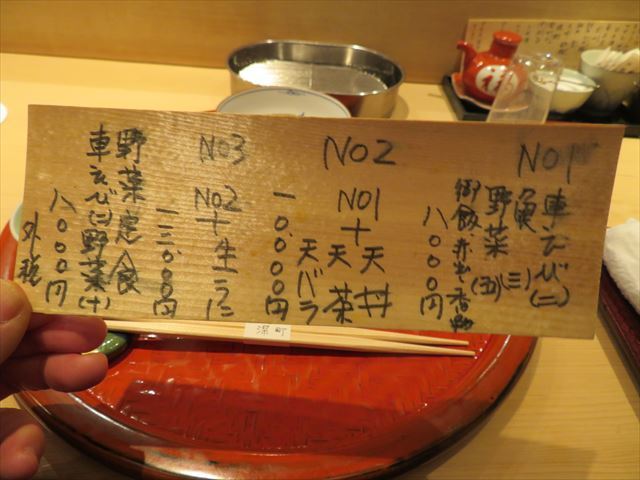 NO1
車えび(二)
魚(三)
野菜(五)
御飯 赤出 香物
八〇〇〇円
NO2
NO1
十
天丼
天茶
天バラ
一〇、〇〇〇円
NO3
NO2
十
生うに
一三〇〇〇円
野菜定食
車えび(二)野菜(十)
八〇〇〇円
外税
深町